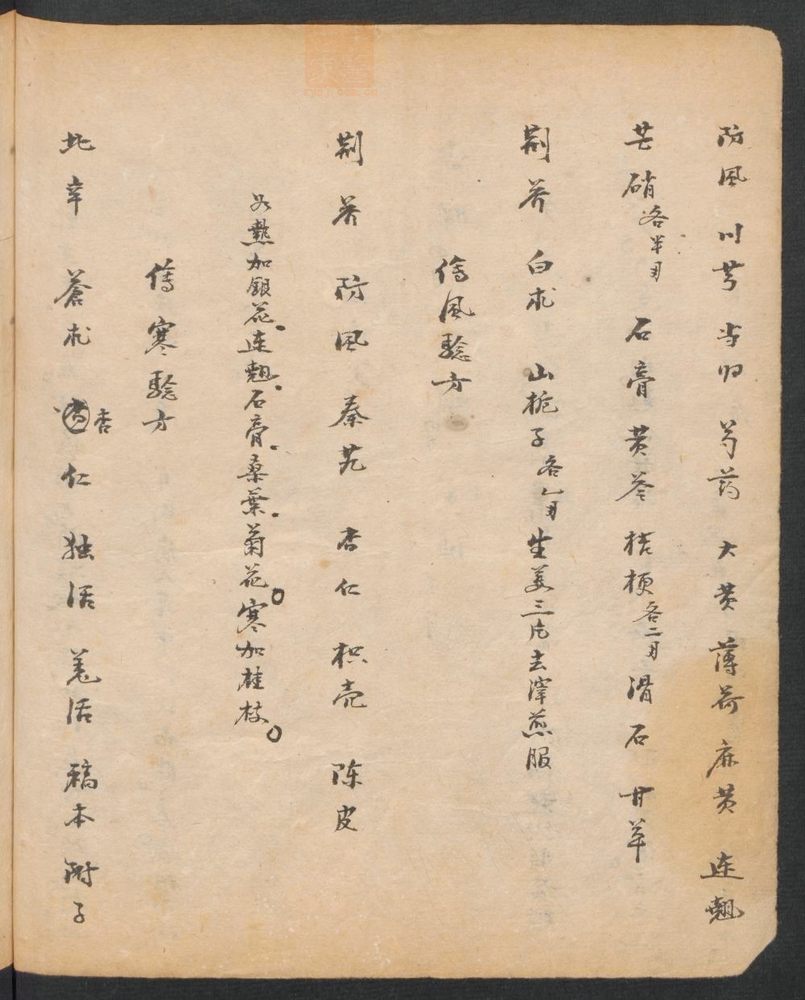 防風 川芎 当归 芍药 大黄 薄荷 麻黄 连翘
芒硝各半月 石膏 黄芩 桔梗各二月 滑石 甘草
荆芥 白朮 山栀子各一月 生姜三片去滓煎服
傷風驗方
荆芥 防風 秦艽 杏仁 枳壳 陈皮
如熱加銀花、连翘、石膏、桑葉、菊花。寒加桂枝。
傷寒驗方
北辛 蒼朮 杏仁 独活 羗活 稿本 附子